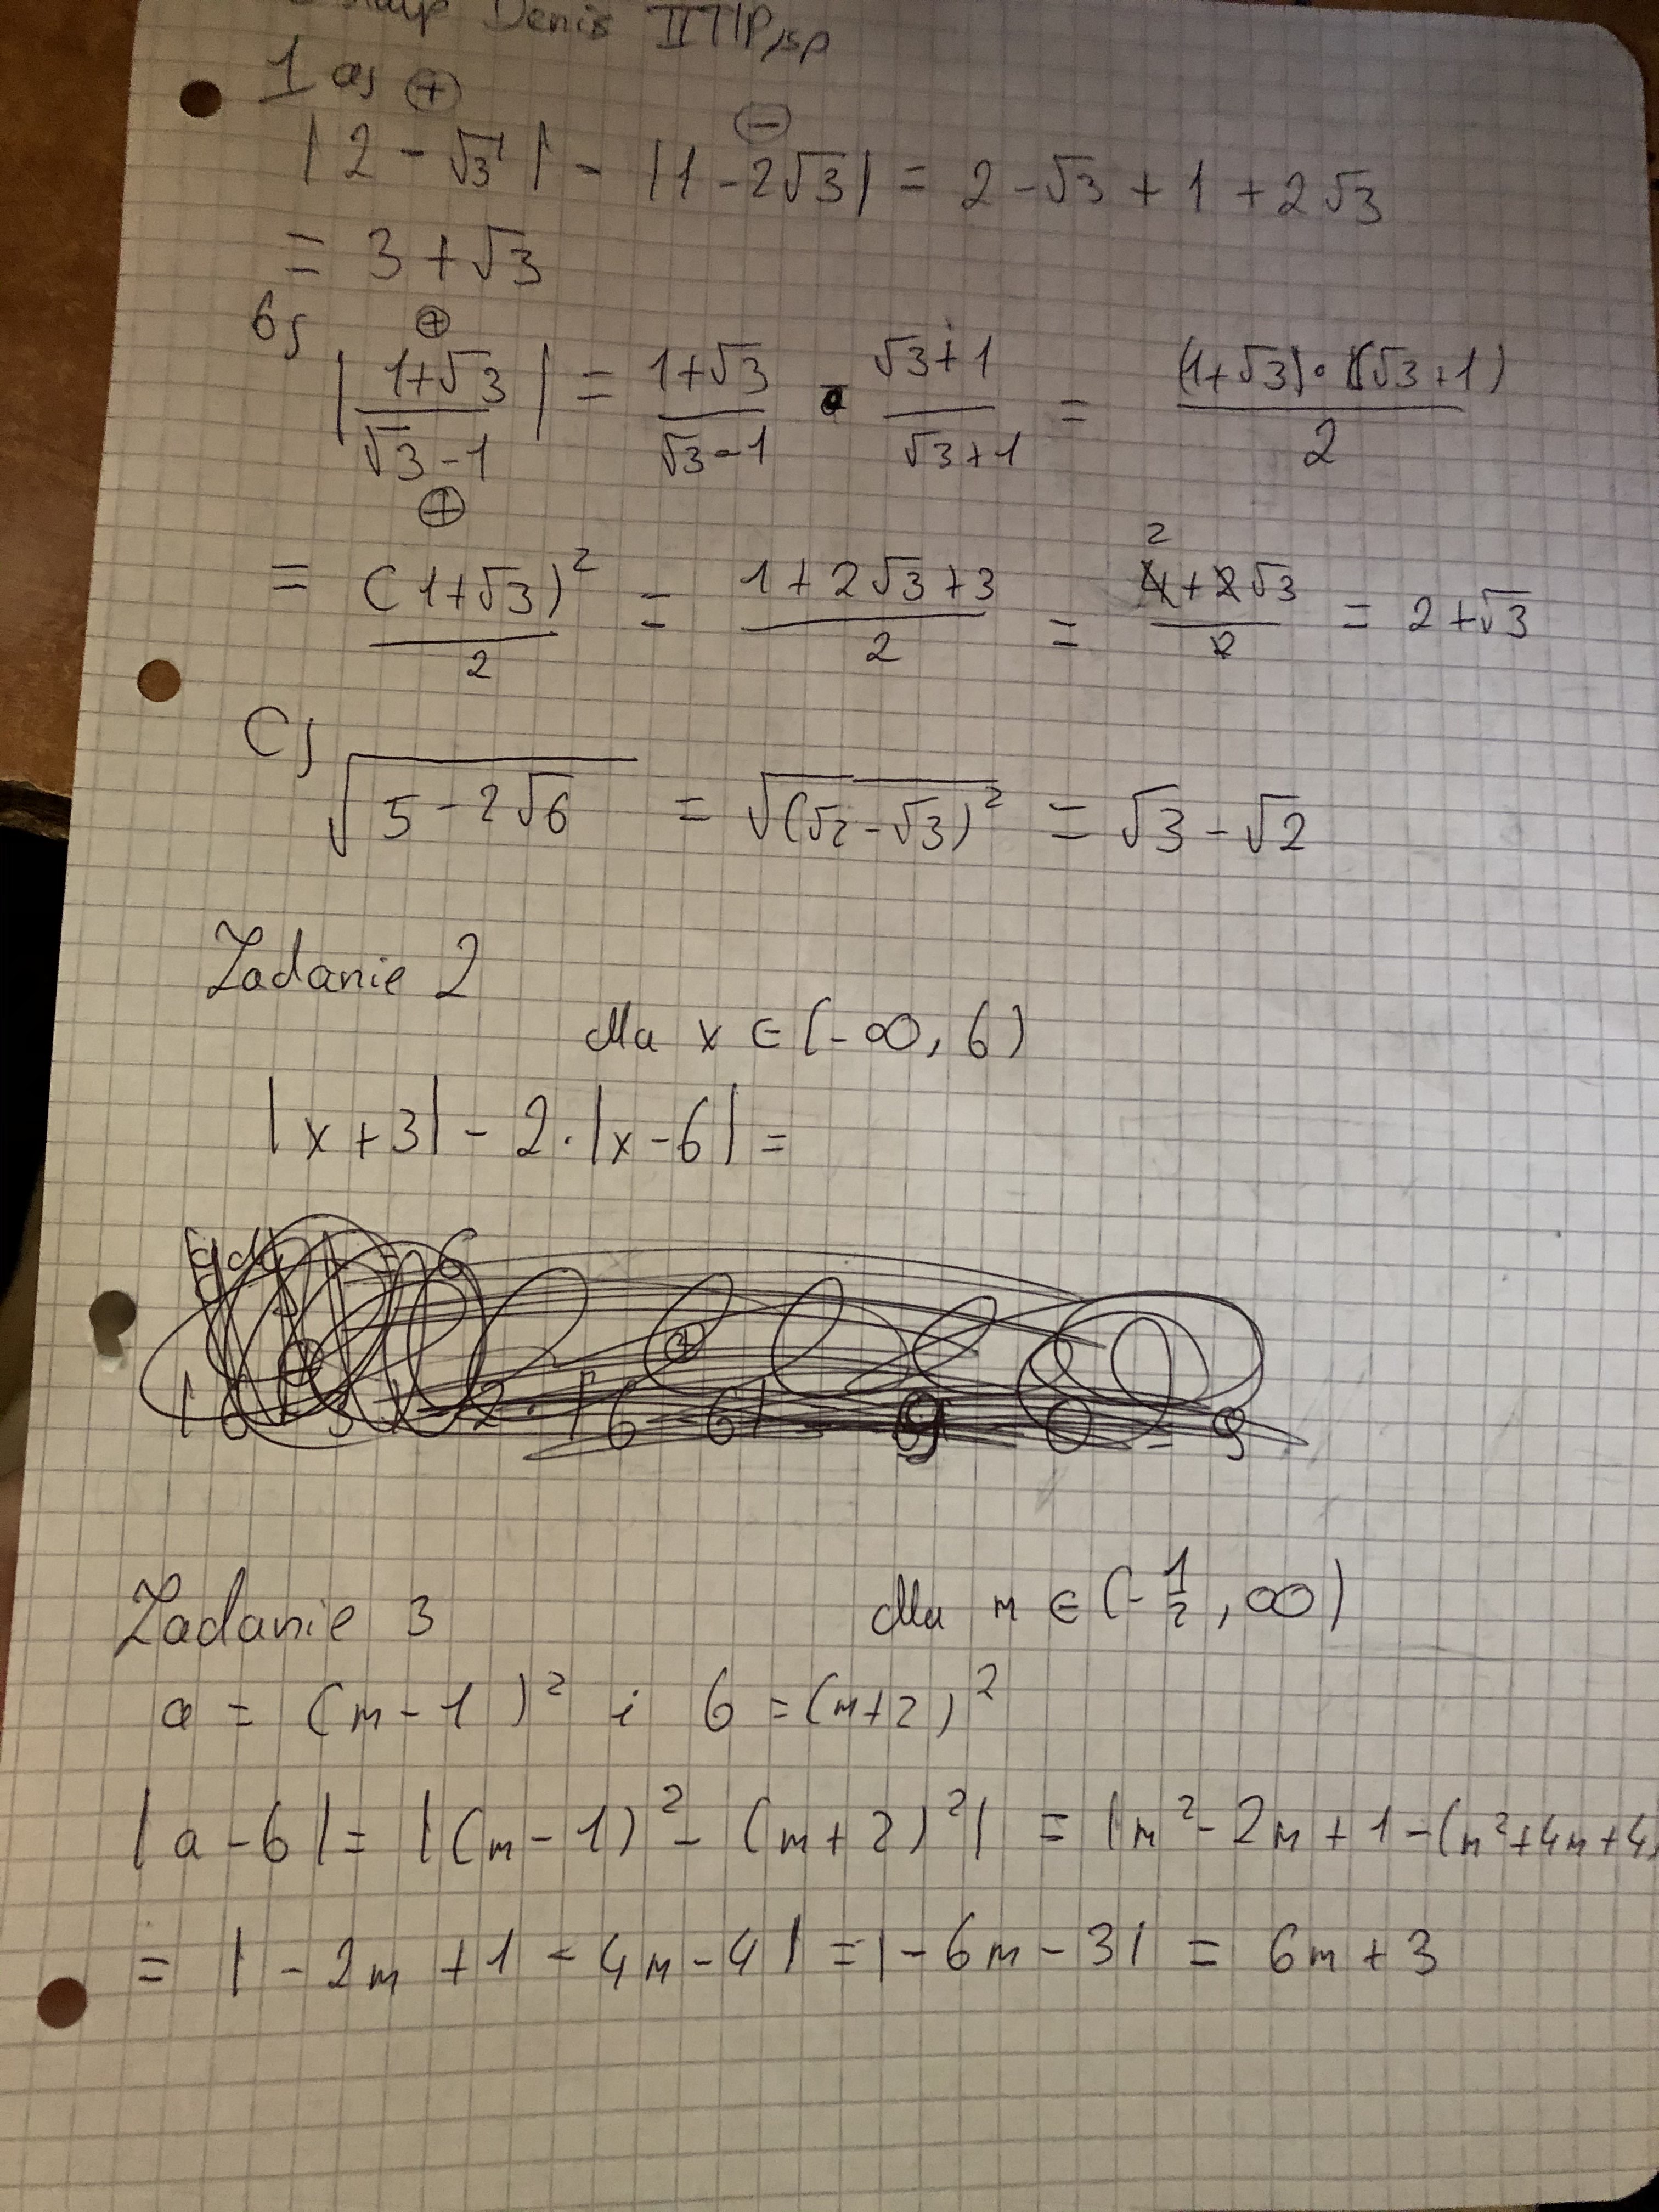 Denis
1 a)
⊕ ⊖
|2 - √3| - |1 - 2√3| = 2 - √3 + 1 + 2√3
= 3 + √3
b)
⊕
|(1+√3)/(√3-1)| = (1+√3)/(√3-1) · (√3+1)/(√3+1) = ((1+√3)·(√3+1))/2
⊕
= (1+√3)²/2 = (1+2√3+3)/2 = (4+2√3)/2 = 2+√3
2
C)
√(5-2√6) = √((√2-√3)²) = √3-√2
Zadanie 2
dla x ∈ (-∞, 6)
|x+3| - 2·|x-6| =
Zadanie 3 dla m ∈ (-1/2, ∞)
a = (m-1)² i b = (m+2)²
|a-b| = |(m-1)² - (m+2)²| = |m² - 2m + 1 - (m²+4m+4)
= |-2m + 1 - 4m - 4| = |-6m - 3| = 6m + 3